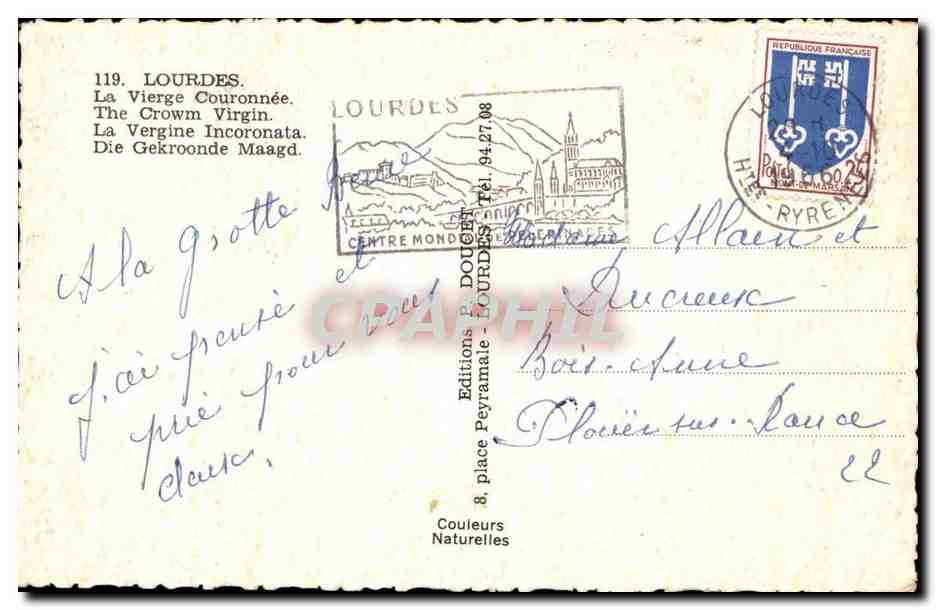 119. LOURDES.
La Vierge Couronnée.
The Crowm Virgin.
La Vergine Incoronata.
Die Gekroonde Maagd.
LOURDES
CENTRE MONDIAL DE PELERINAGES
REPUBLIQUE FRANÇAISE
POSTES 0,25
MONT-DE-MARSAN
LOURDES
Htes PYRENEES
A la grotte
j'ai pensé et
prié pour vous
deux.
Editions P. DOUCET
8, place Peyramale - LOURDES Tél. 94.27.08
Madame Allain et
Ducreux
Bois-Anne
Plouër sur-Rance
22
Couleurs
Naturelles
CPAPHIL